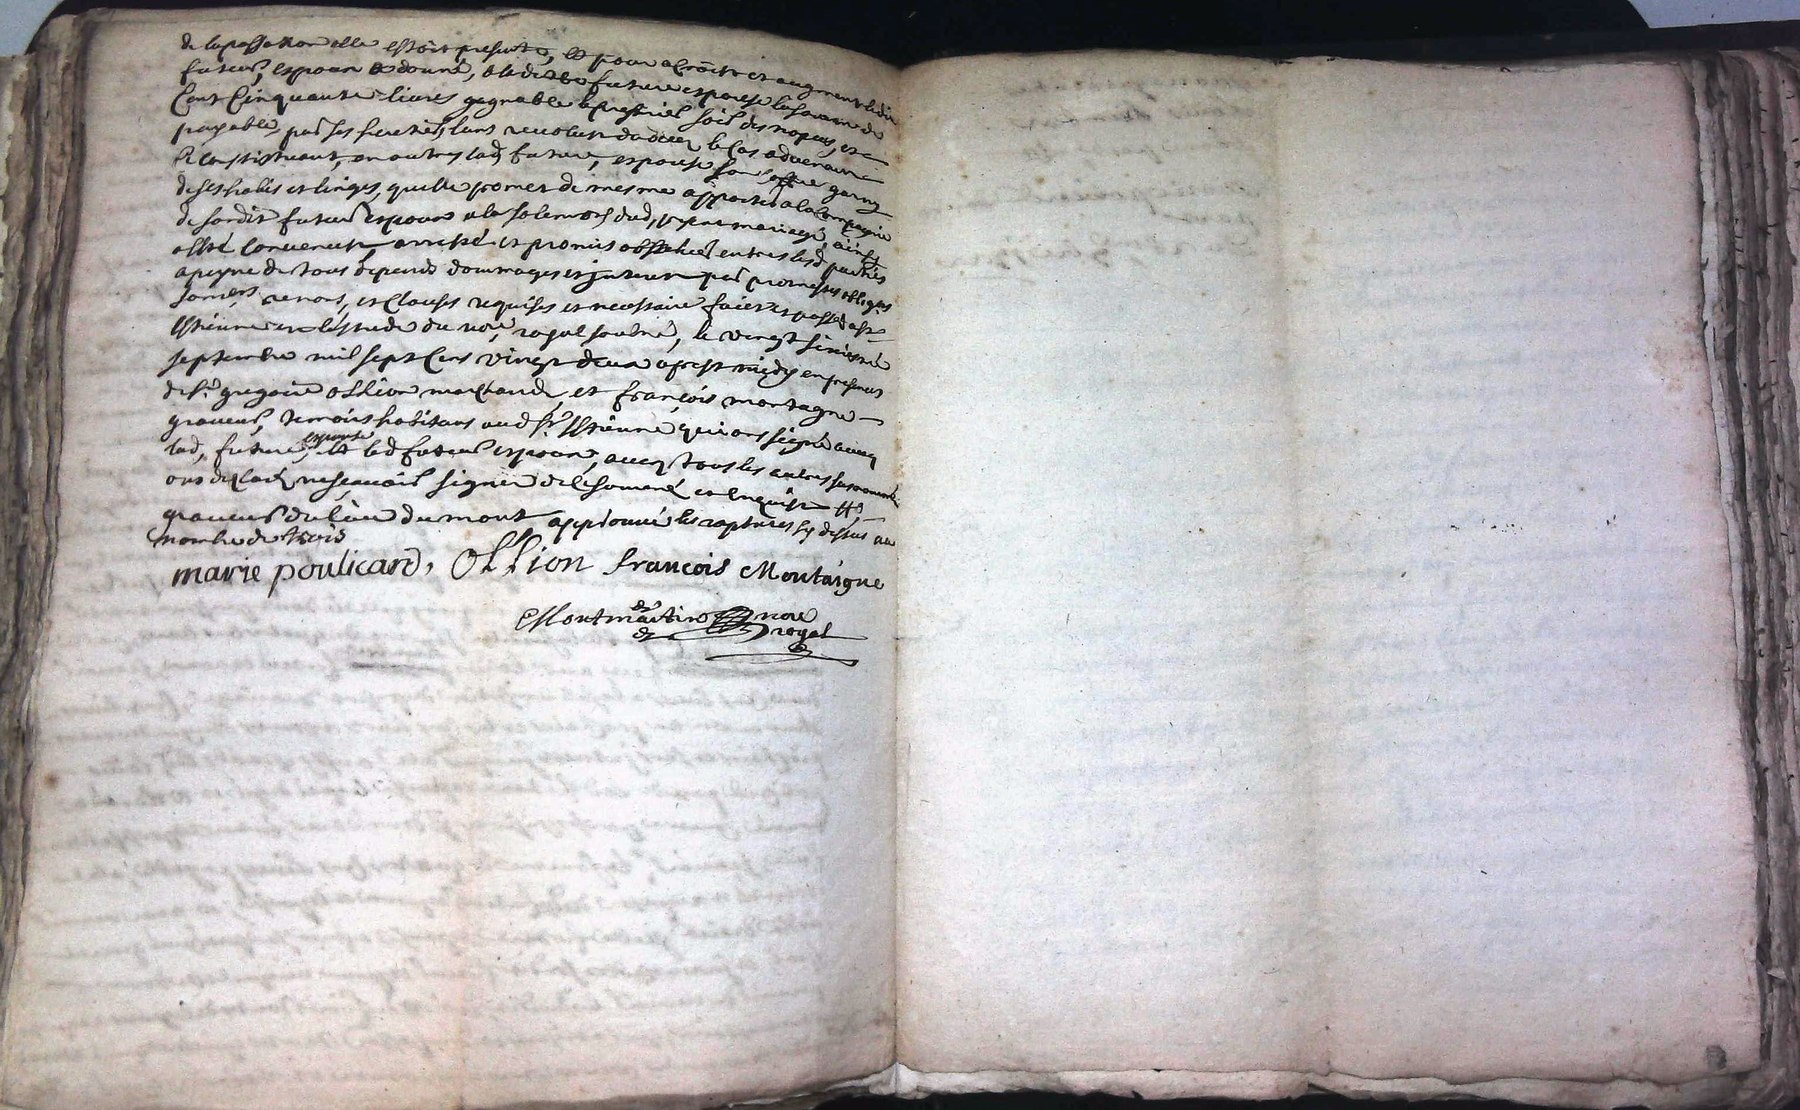 de la passation elle estoit presente, et pour acroitre et augment ledit
futeur espoux a donné, a ladite future espouse la somme de
Cent Cinquante livres gagnable le premier soir des nopces, et
payable par ses heretiers, lans revolut du deces le cas advenant
Se constituant, en outres lad, future, espouse son coffre garny
de ses habis et linges, quelle promet de mesme apporter a la Compagnie
de sondit futeur espoux a la solemon dud, present mariage, ainsy
esté Convenut arresté et promis observer entres lesd parties
a peyne de tous depends dommages et jnterest par promesses obligaōs
soumōns renons, et clauses requises et necessaire fait et passé a St
Estienne en lestude du noe, royal soubné, le vingt sixiesme
septembre mil sept Cens vingt deux apres midy en presences
de sr. gregoire ollion marchand, et françois montagne
graveur, temoins habitans aud St Estienne qui ons signé avecq
lad, future, espouse et led futeur espoux, avecq tous les autres susnommés
ons declaré ne scavoir signer de ce sommé et Enquis
graveur du lieu du mont approuvé les raptures cy dessus au
nombre de trois
marie poulicard, Ollion françois Montaigne
de
Montmartin noe
royal